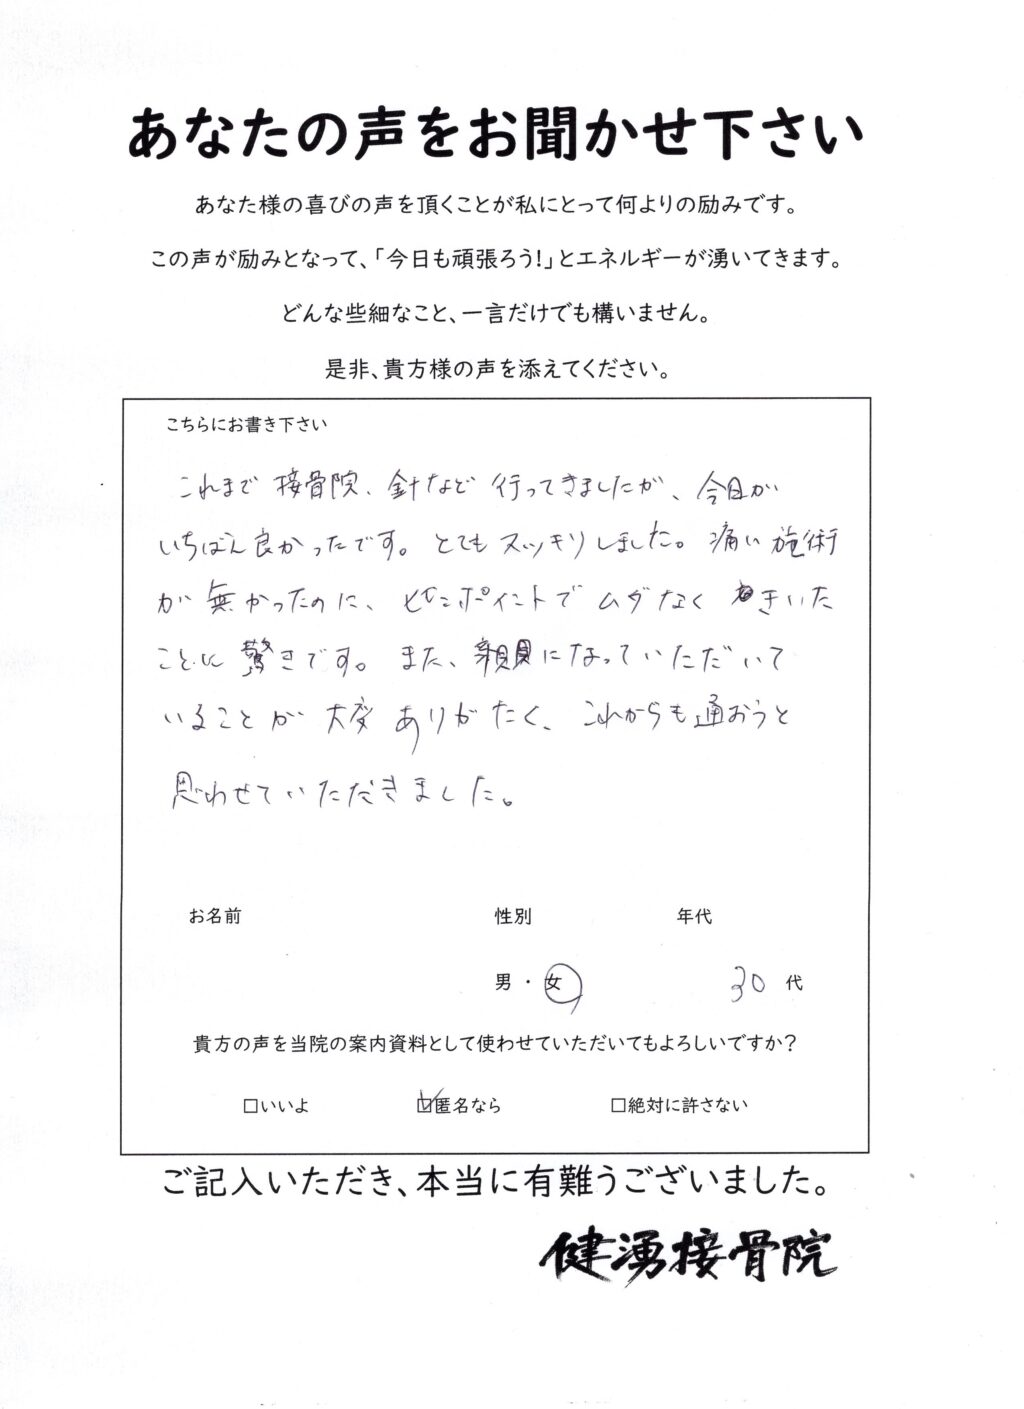 あなたの声をお聞かせ下さい
あなた様の喜びの声を頂くことが私にとって何よりの励みです。
この声が励みとなって、「今日も頑張ろう!」とエネルギーが湧いてきます。
どんな些細なこと、一言だけでも構いません。
是非、貴方様の声を添えてください。
こちらにお書き下さい
これまで接骨院、針など行ってきましたが、今日が
いちばん良かったです。とてもスッキリしました。痛い施術
が無かったのに、ピンポイントでムダなくきいた
ことに驚きです。また、親身になっていただいて
いることが大変ありがたく、これからも通おうと
思わせていただきました。
お名前 性別 年代
男・女 30代
貴方の声を当院の案内資料として使わせていただいてもよろしいですか?
□いいよ ☑匿名なら □絶対に許さない
ご記入いただき、本当に有難うございました。
健湧接骨院